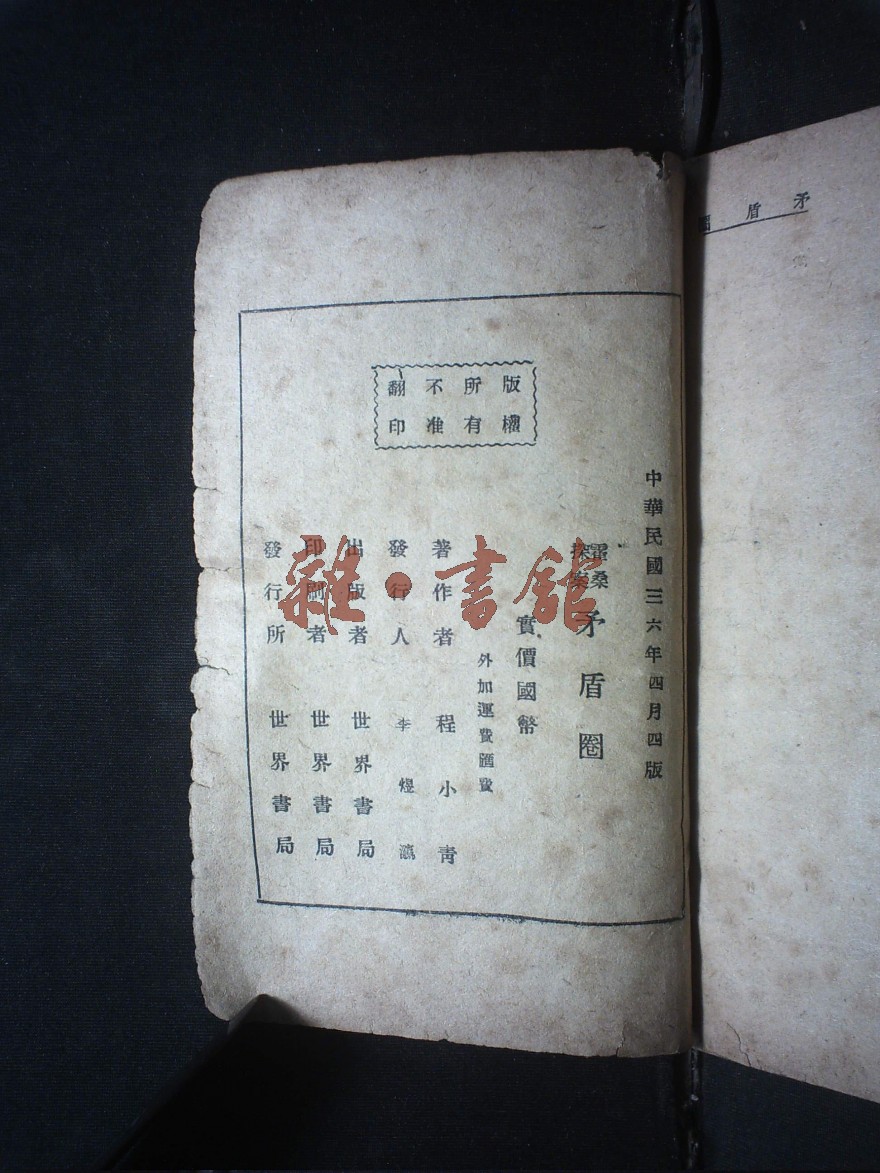 矛盾圈
中華民國三六年四月四版
霍桑探案 矛盾圈
實價國幣
外加運費匯費
著作者 程小青
發行人 李煜瀛
出版者 世界書局
印刷者 世界書局
發行所 世界書局
版權所有
不准翻印
雜·書館